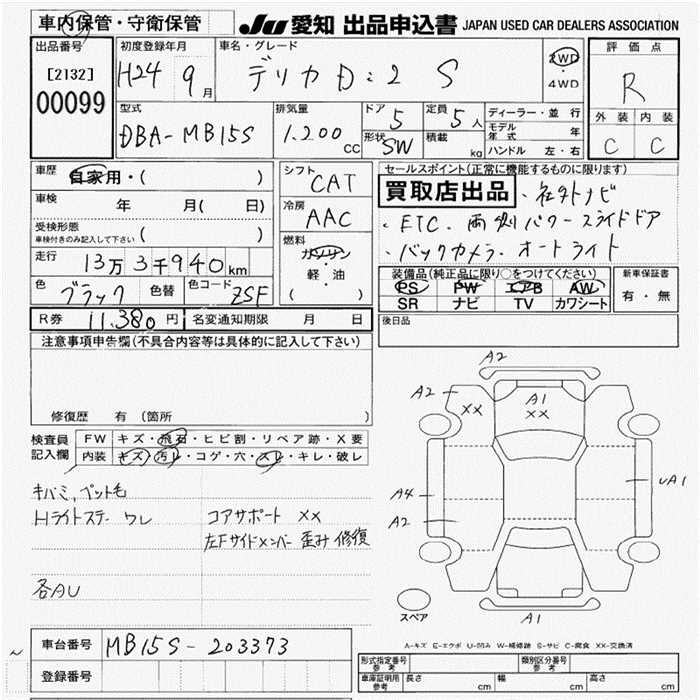 車内保管・守衛保管
JU 愛知 出品申込書 JAPAN USED CAR DEALERS ASSOCIATION
出品番号
[2132]
00099
初度登録年月
H24 9月
車名・グレード
デリカD:2 S
2WD
・
4WD
評価点
R
外装 内装
C C
型式
DBA-MB15S
排気量
1.200 cc
ドア 5
形状 SW
定員 5人
積載 kg
ディーラー・並行
モデル年式 年
ハンドル 左・右
車歴 自家用・( )
車検 年 月( 日)
受検形態
車検付きのみ記入して下さい ( )
走行 13万3千940km
色 ブラック 色替 色コード ZSF
シフト CAT
冷房 AAC
燃料
ガソリン
軽・油
( )
セールスポイント(正常に機能するものに限ります)
買取店出品 ・社外ナビ
・ETC・両側パワースライドドア
・バックカメラ・オートライト
装備品(純正品に限り○をつけてください)
PS PW エアB AW
SR ナビ TV カワシート
新車保証書
有・無
R券 11,380円 名変通知期限 月 日
後日品
注意事項申告欄(不具合内容等は具体的に記入して下さい)
修復歴 有(箇所
検査員記入欄
FW キズ・飛石・ヒビ割・リペア跡・X要
内装 キズ・汚レ・コゲ・穴・スレ・キレ・破レ
キバミ,ペット毛
Hライトステー ワレ
コアサポート XX
左Fサイドメンバー 歪み 修復
各AU
A2
A2
XX
A1
XX
A4
A2
UA1
A1
スペア
A-キズ E-エクボ U-凹み W-補修跡 S-サビ C-腐食 XX-交換済
車台番号 MB15S-203373
登録番号
形式指定番号 参考
類別区分番号 参考
車庫証明用 参考 長さ cm 幅 cm 高さ cm